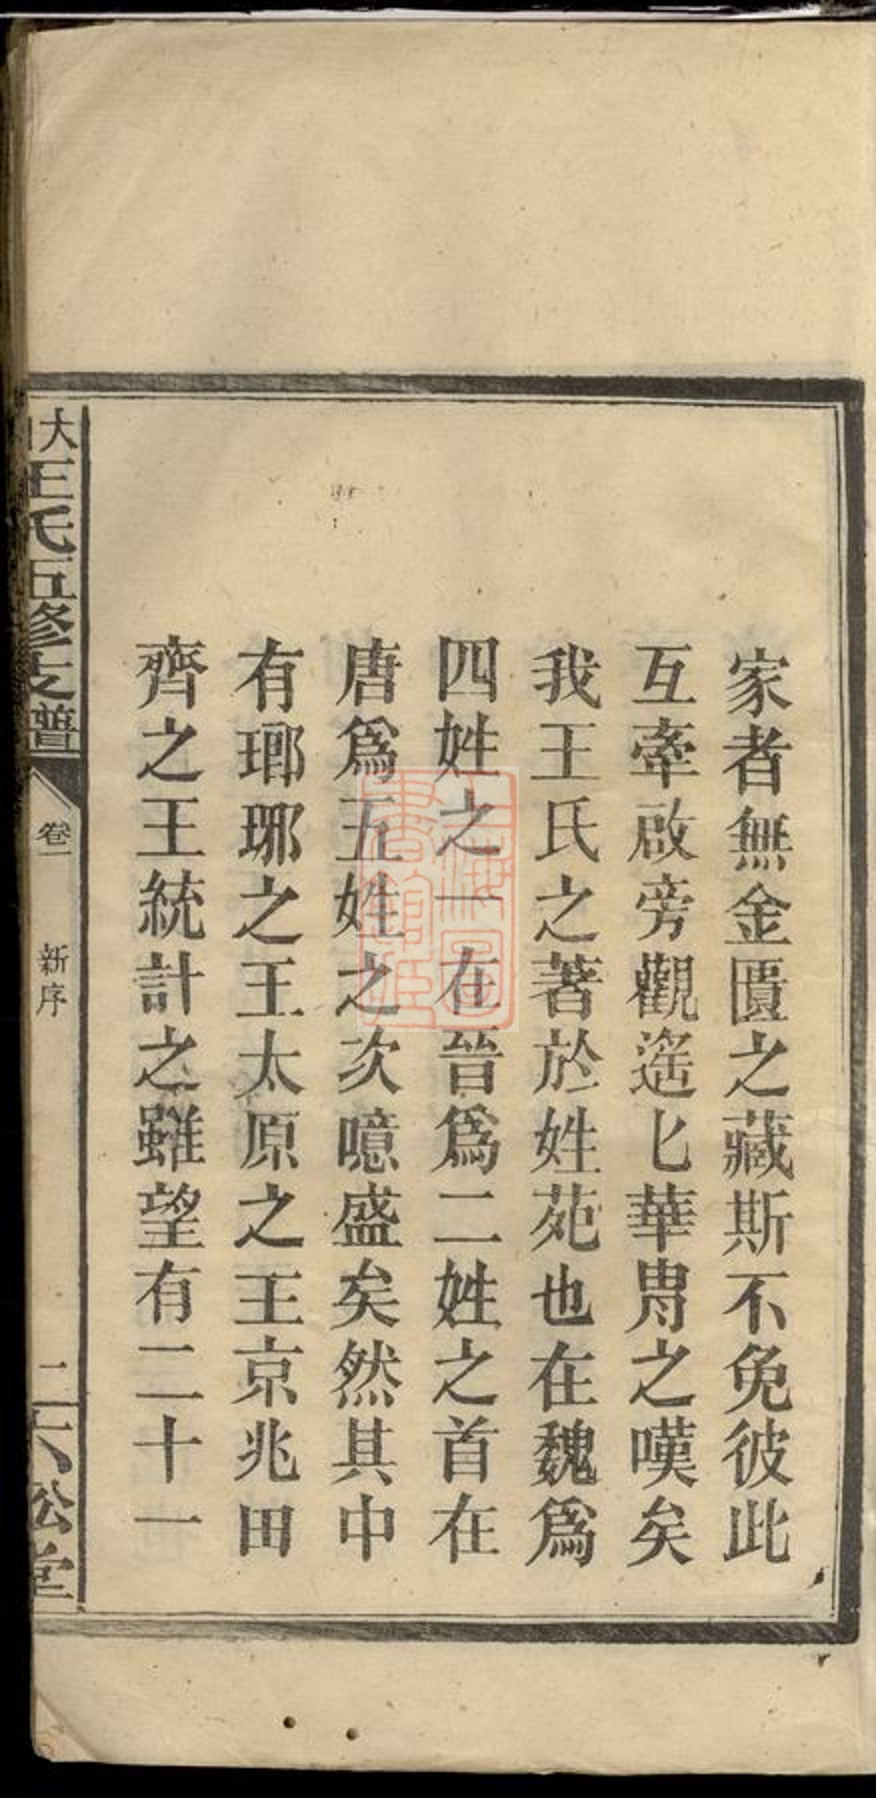 家者無金匱之藏斯不免彼此
互牽啟旁觀遙匕華胄之嘆矣
我王氏之著於姓苑也在魏爲
四姓之一在晉爲二姓之首在
唐爲五姓之次噫盛矣然其中
有瑯琊之王太原之王京兆田
齊之王統計之雖望有二十一
大
王氏五修支譜
卷一
新序
二
松堂